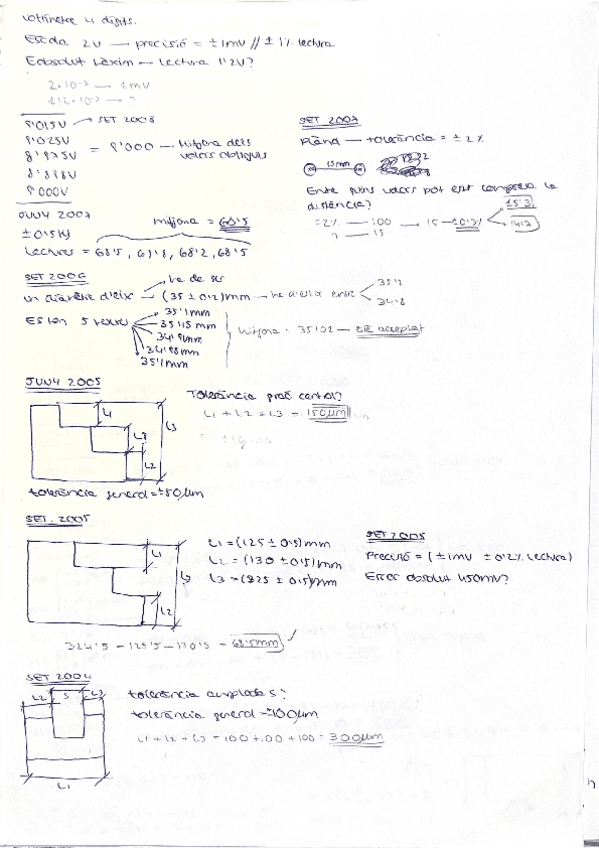 voltímetre 4 dígits.
Escala 2V — precisió = ±1mV // ±1% lectura
Eabsolut màxim — lectura 1'2V?
2·10⁻³ — 1mV
1'2·10⁻³ — ?
8'015V → SET 2008
8'025V
8'975V = 8'000 — Mitjana dels valors obtinguts
8'888V
8'000V
SET 2007
Plànol — tolerància = ±2%
15mm
Entre quins valors pot estar compresa la distància?
=2% — 100 — 15 — ±0'3% 15'3
? — 15 14'7
JUNY 2007
±0'5kg
mitjana = 68'5
Lectures = 68'5, 69'8, 68'2, 68'5
SET 2006
ha de ser
un diàmetre d'eix → (35 ± 0'2)mm — ha d'estar entre 35'2
34'8
Es fan 5 35'1mm
35'15mm
34'98mm
35'1mm
Mitjana = 35'02 — és acceptat
JUNY 2005
L1
L2
L3
Tolerància
L1 + L2 + L3 = 150µm
tolerància general = ±50µm
SET. 2005
L1
L2
L3
L1 = (125 ± 0'5)mm
L2 = (130 ± 0'5)mm
L3 = (325 ± 0'5)mm
324'5 - 125'5 - 130'5 = 68'5mm
SET 2005
Precisió = (±1mV ±0'2% lectura)
Error absolut 450mV?
SET 2004
L2 S L3
L1
tolerància amplada S?
tolerància general = ±100µm
L1 + L2 + L3 = 100 + 100 + 100 = 300µm